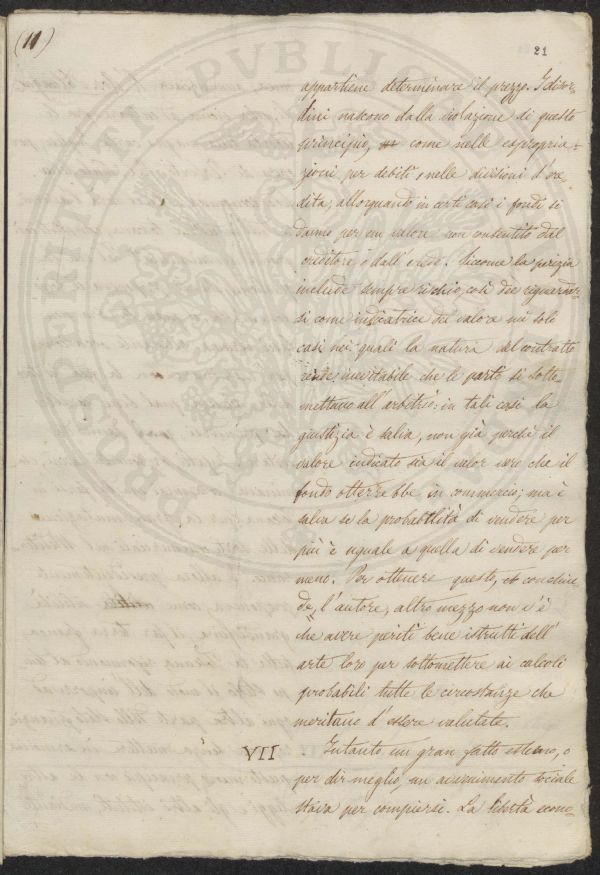 (11)
21
appartiene determinare il prezzo. I disor-
dini nascono dalla violazione di questo
principio, come nelle espropria-
zioni per debiti, nelle divisioni d'ere
dità, allorquando in certi casi i fondi si
danno per un valore non consentito dal
creditore, o dall'erede. Siccome la perizia
include sempre rischio, così dee riguardar-
si come indicatrice del valore nei soli
casi nei quali la natura del contratto
rende inevitabile che le parti si sotto
mettano all'arbitrio: in tali casi la
giustizia è salva, non già perché il
valore indicato sia il valor vero che il
fondo otterrebbe in commercio; ma è
salva se la probabilità di vendere per
più è uguale a quella di vendere per
meno. Per ottenere questo, conchiu
de, l'autore, altro mezzo non v'è
che avere periti bene istrutti dell'
arte loro per sottomettere ai calcoli
probabili tutte le circostanze che
meritano d'essere valutate.
VII Intanto un gran fatto esterno, o
per dir meglio, un avvenimento sociale
stava per compiersi. La libertà econo-
PROSPERITATI PUBLICAE